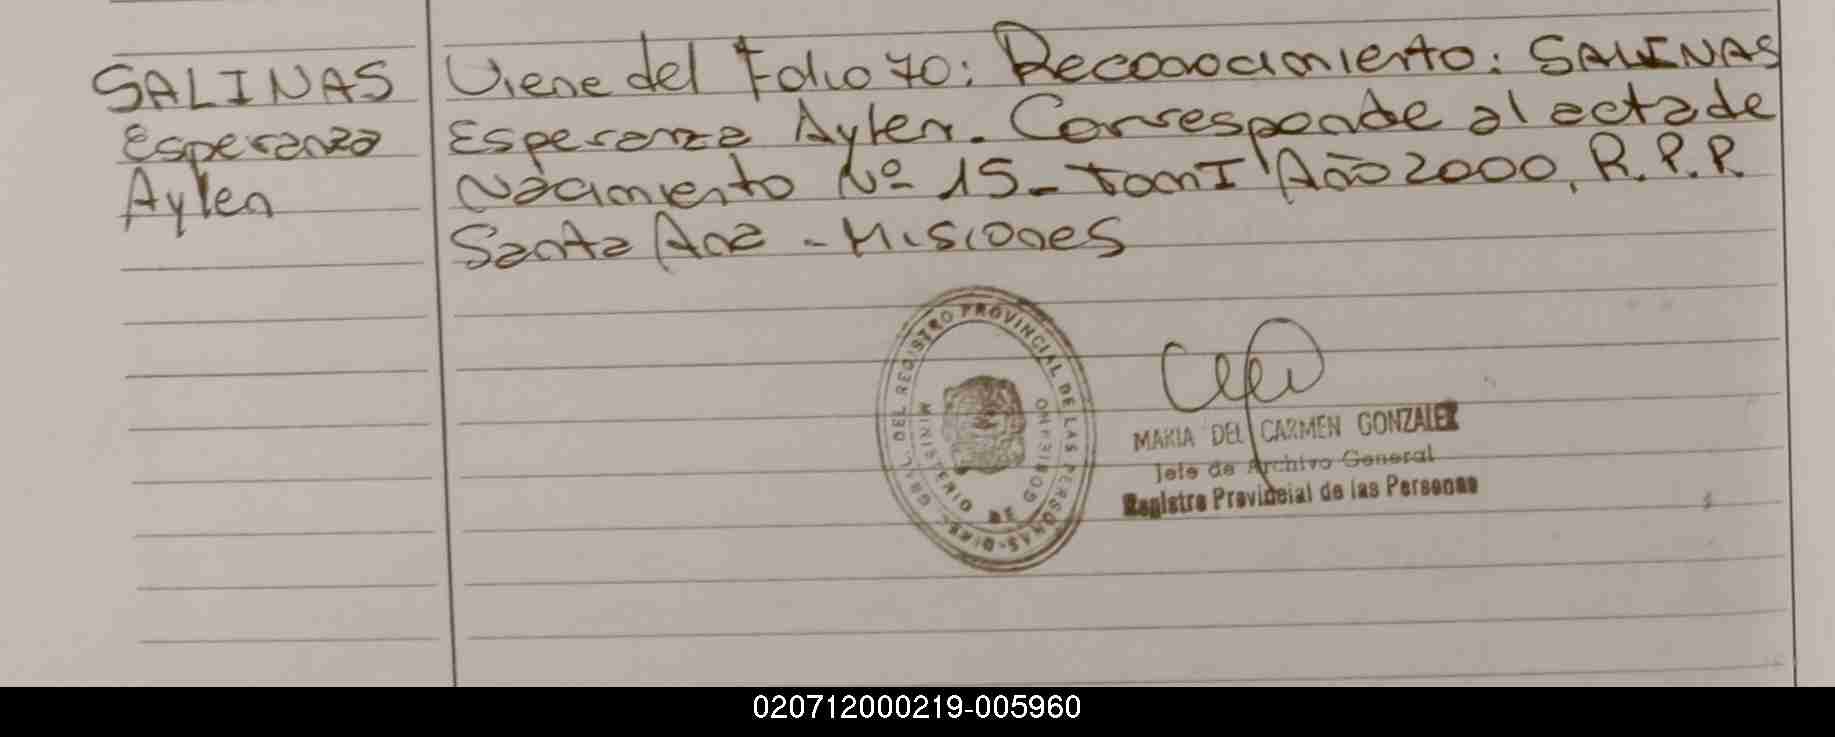 SALINAS
Esperanza
Aylen
Viene del Folio 70: Reconocimiento: SALINAS
Esperanza Aylen. Corresponde al acta de
Nacimiento Nº 15- Tom I Año 2000. R.P.P.
Santa Ana - Misiones
GRAL. DEL REGISTRO PROVINCIAL DE LAS PERSONAS-DIREC.
MINISTERIO DE GOBIERNO
MARIA DEL CARMEN GONZALEZ
Jefe de Archivo General
Registro Provincial de las Personas
020712000219-005960